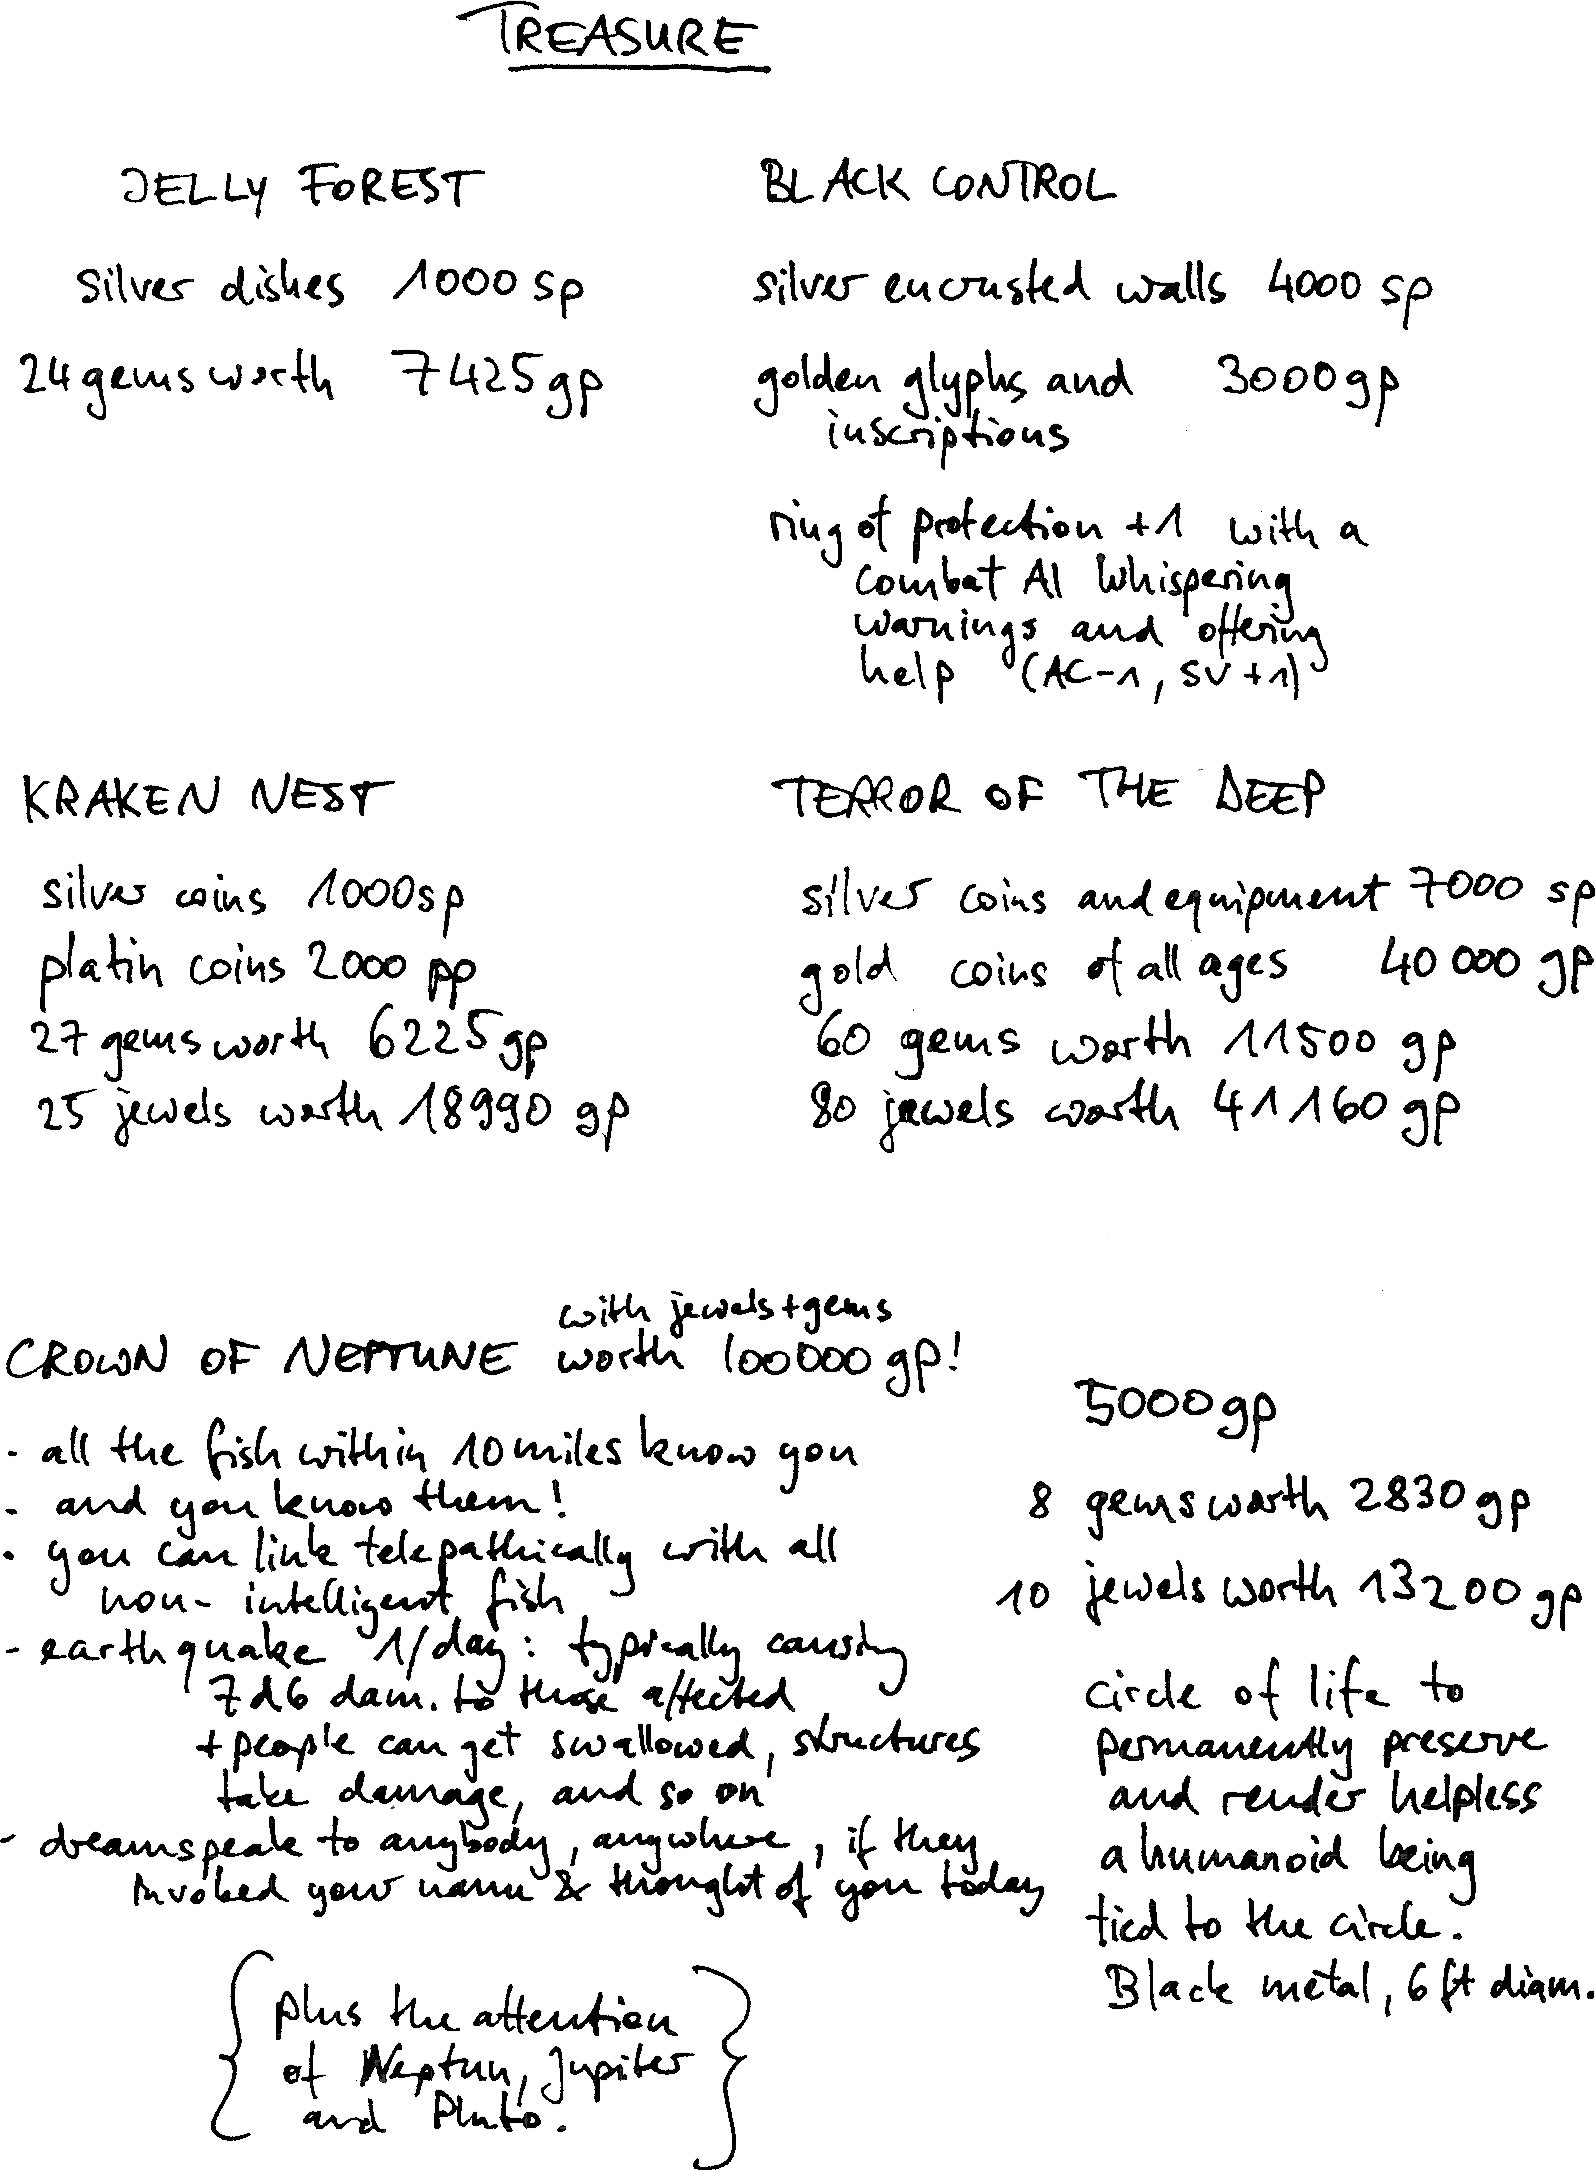 TREASURE
JELLY FOREST
silver dishes 1000 sp
24 gems worth 7425 gp
BLACK CONTROL
silver encrusted walls 4000 sp
golden glyphs and 3000 gp
inscriptions
ring of protection +1 with a
combat AI whispering
warnings and offering
help (AC-1, SV+1)
KRAKEN NEST
silver coins 1000 sp
platin coins 2000 pp
27 gems worth 6225 gp
25 jewels worth 18990 gp
TERROR OF THE DEEP
silver coins and equipment 7000 sp
gold coins of all ages 40 000 gp
60 gems worth 11500 gp
80 jewels worth 41160 gp
with jewels + gems
CROWN OF NEPTUNE worth 100000 gp!
- all the fish within 10 miles know you
- and you know them!
- you can link telepathically with all
non-intelligent fish
- earthquake 1/day: typically causing
7d6 dam. to those affected
+ people can get swallowed, structures
take damage, and so on
- dreamspeak to anybody, anywhere, if they
invoked your name & thought of you today
{ plus the attention
of Neptun, Jupiter
and Pluto. }
5000 gp
8 gems worth 2830 gp
10 jewels worth 13200 gp
circle of life to
permanently preserve
and render helpless
a humanoid being
tied to the circle.
Black metal, 6 ft diam.